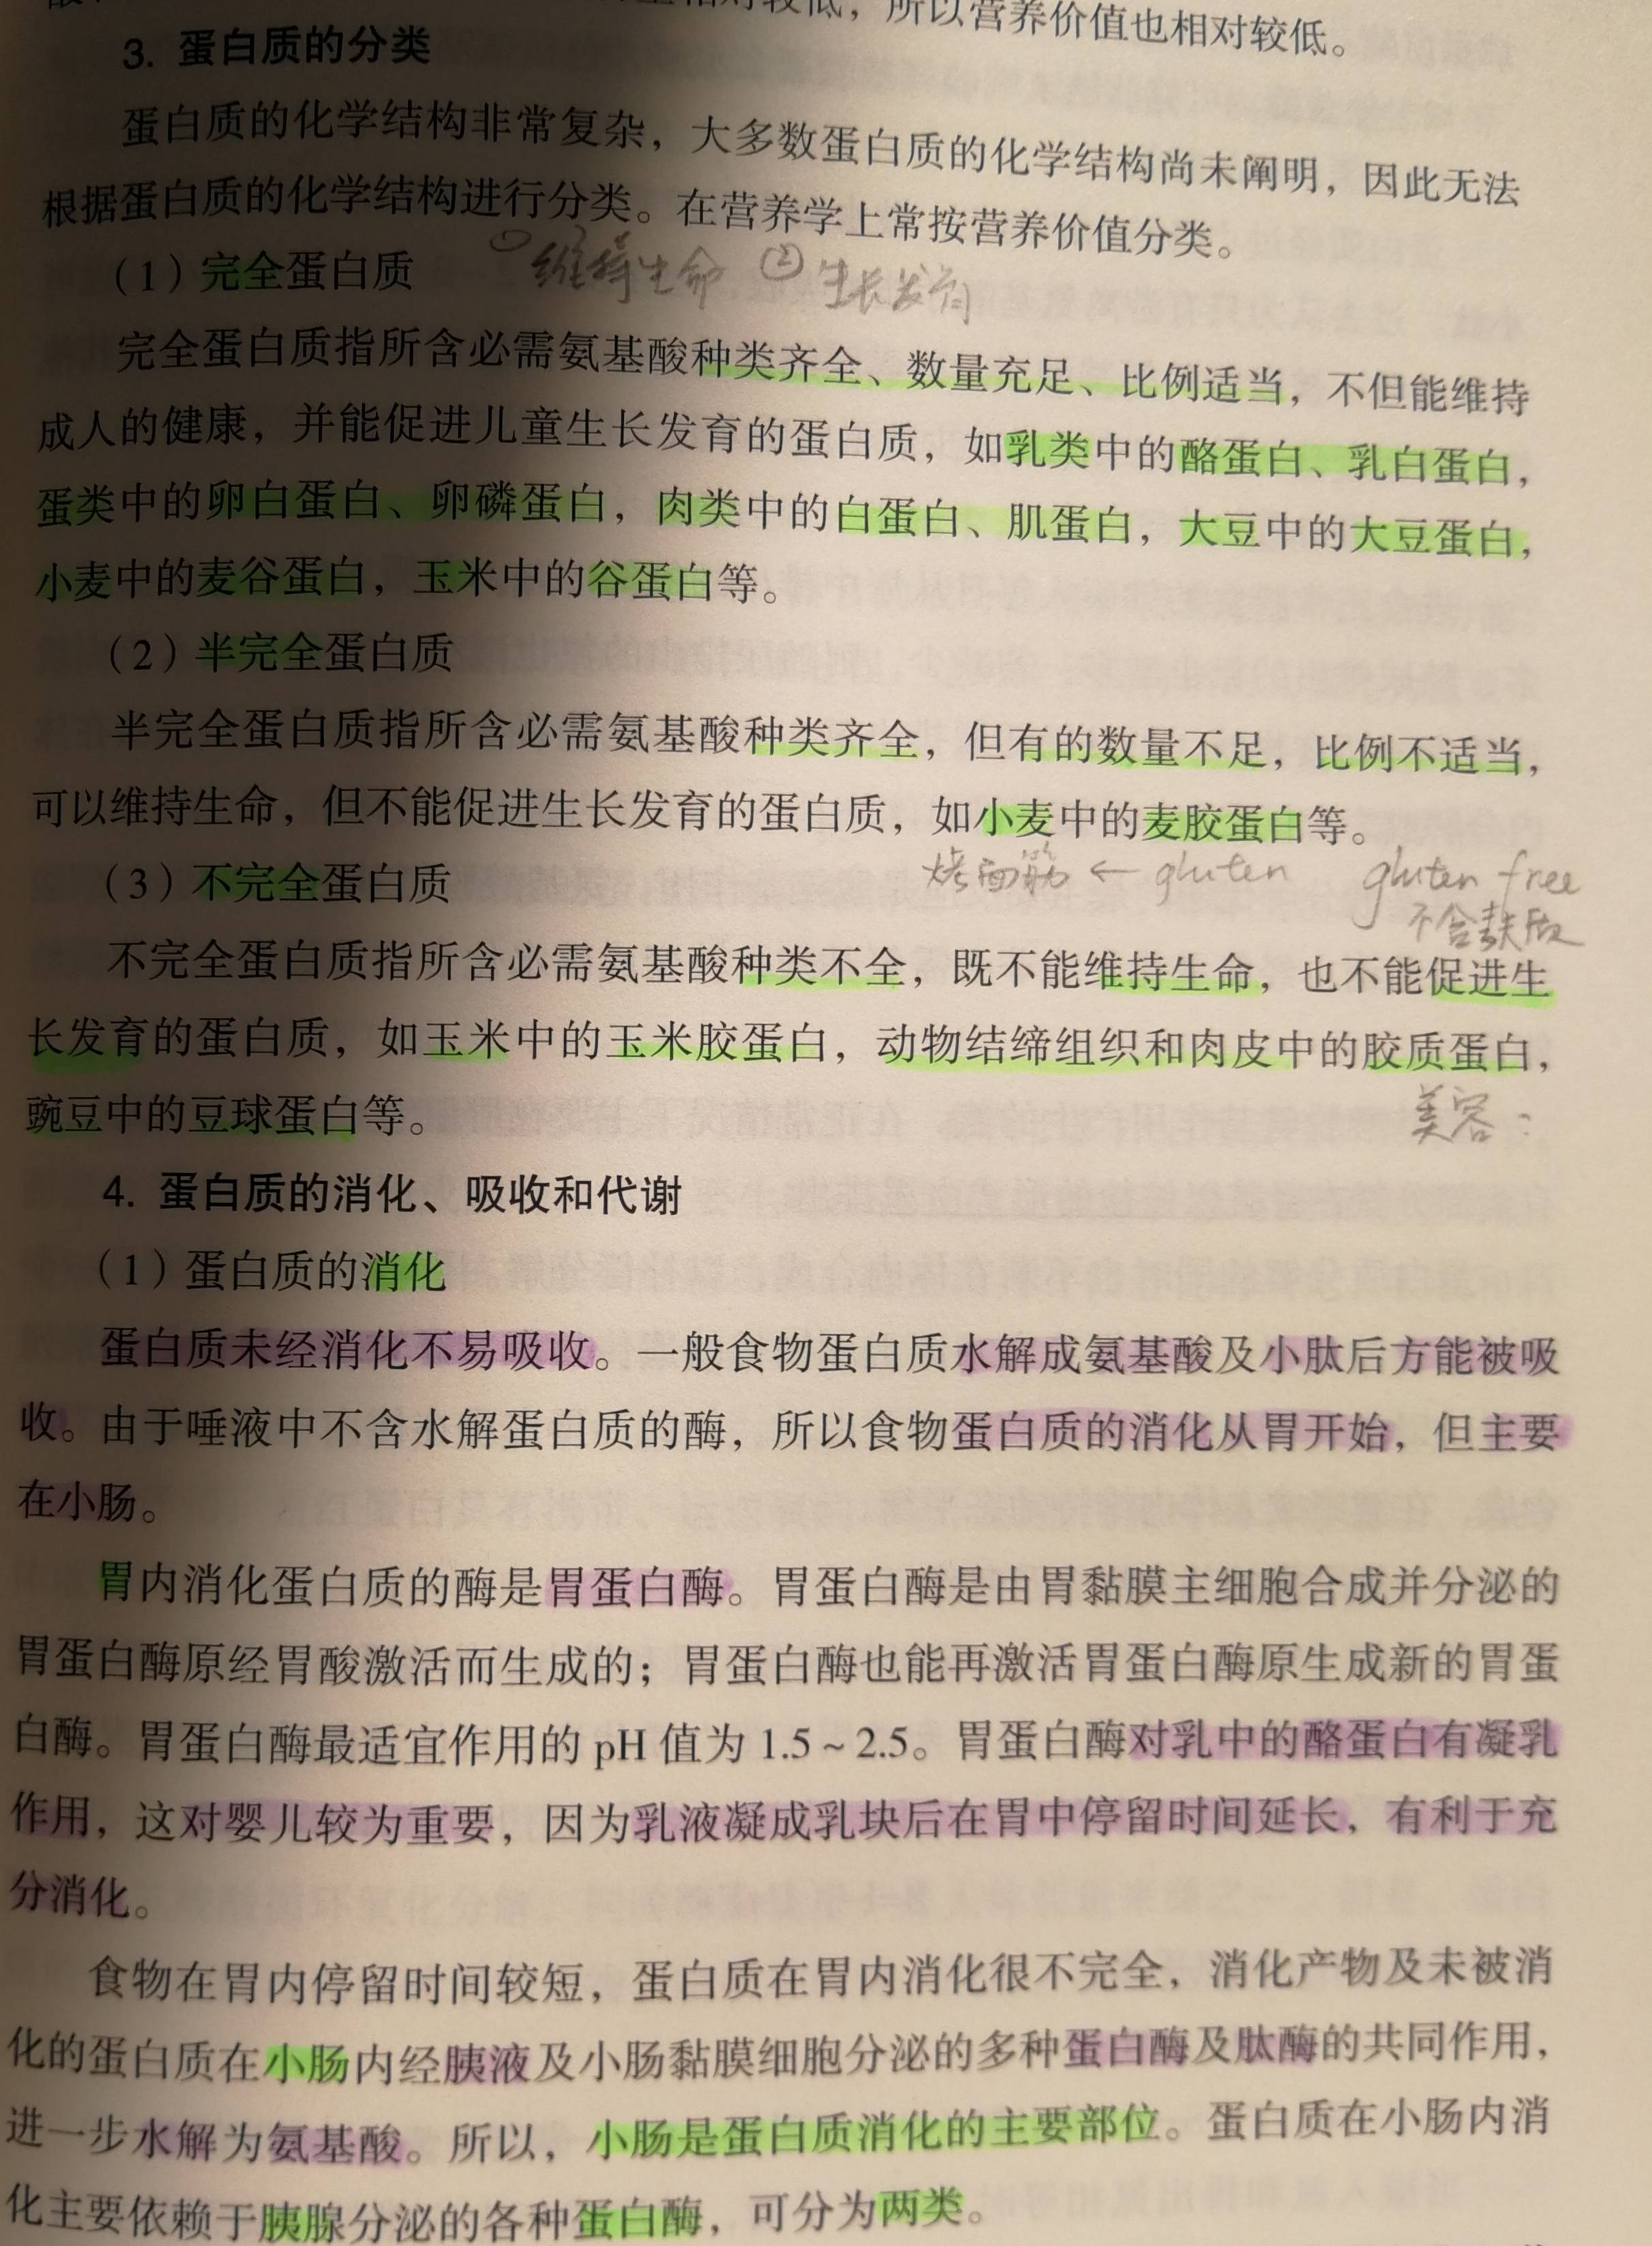 相对较低，所以营养价值也相对较低。
3. 蛋白质的分类
蛋白质的化学结构非常复杂，大多数蛋白质的化学结构尚未阐明，因此无法
根据蛋白质的化学结构进行分类。在营养学上常按营养价值分类。
（1）完全蛋白质 ①维持生命 ②生长发育
完全蛋白质指所含必需氨基酸种类齐全、数量充足、比例适当，不但能维持
成人的健康，并能促进儿童生长发育的蛋白质，如乳类中的酪蛋白、乳白蛋白，
蛋类中的卵白蛋白、卵磷蛋白，肉类中的白蛋白、肌蛋白，大豆中的大豆蛋白，
小麦中的麦谷蛋白，玉米中的谷蛋白等。
（2）半完全蛋白质
半完全蛋白质指所含必需氨基酸种类齐全，但有的数量不足，比例不适当，
可以维持生命，但不能促进生长发育的蛋白质，如小麦中的麦胶蛋白等。
（3）不完全蛋白质 烤面筋 ← gluten gluten free
不含麸质
不完全蛋白质指所含必需氨基酸种类不全，既不能维持生命，也不能促进生
长发育的蛋白质，如玉米中的玉米胶蛋白，动物结缔组织和肉皮中的胶质蛋白，
豌豆中的豆球蛋白等。 美容：
4. 蛋白质的消化、吸收和代谢
（1）蛋白质的消化
蛋白质未经消化不易吸收。一般食物蛋白质水解成氨基酸及小肽后方能被吸
收。由于唾液中不含水解蛋白质的酶，所以食物蛋白质的消化从胃开始，但主要
在小肠。
胃内消化蛋白质的酶是胃蛋白酶。胃蛋白酶是由胃黏膜主细胞合成并分泌的
胃蛋白酶原经胃酸激活而生成的；胃蛋白酶也能再激活胃蛋白酶原生成新的胃蛋
白酶。胃蛋白酶最适宜作用的 pH 值为 1.5 ~ 2.5。胃蛋白酶对乳中的酪蛋白有凝乳
作用，这对婴儿较为重要，因为乳液凝成乳块后在胃中停留时间延长，有利于充
分消化。
食物在胃内停留时间较短，蛋白质在胃内消化很不完全，消化产物及未被消
化的蛋白质在小肠内经胰液及小肠黏膜细胞分泌的多种蛋白酶及肽酶的共同作用，
进一步水解为氨基酸。所以，小肠是蛋白质消化的主要部位。蛋白质在小肠内消
化主要依赖于胰腺分泌的各种蛋白酶，可分为两类。